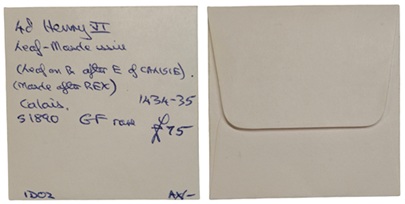 4d Henry VI
Leaf-Mascle issue
(Leaf on Rv after E of CALISIE).
(Mascle after REX)
Calais. 1434-35
S1890 GF rare £75
1DO2 AX/-